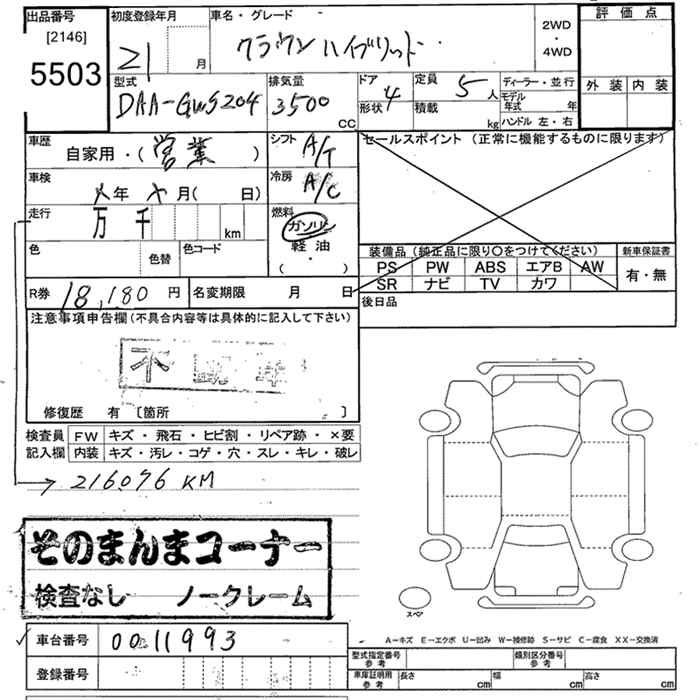 出品番号
[2146]
5503
初度登録年月
21 月
車名・グレード
クラウンハイブリット
2WD
・
4WD
評価点
外装 内装
型式
DAA-GWS204
排気量
3500 CC
ドア
形状 4
定員
5 人
積載 kg
ディーラー・並行
モデル
年式 年
ハンドル 左・右
車歴
自家用・(営業)
シフト A/T
車検
X年X月( 日)
冷房 A/C
走行
万 千 km
燃料
ガソリン
軽油
( ・ )
色 色替 色コード
セールスポイント (正常に機能するものに限ります)
装備品 (純正品に限り○をつけてください)
PS PW ABS エアB AW
SR ナビ TV カワ
新車保証書
有・無
R券 18,180 円
名変期限 月 日
後日品
注意事項申告欄(不具合内容等は具体的に記入して下さい)
修復歴 有 〔箇所 〕
検査員 FW キズ・飛石・ヒビ割・リペア跡・×要
記入欄 内装 キズ・汚レ・コゲ・穴・スレ・キレ・破レ
216076 KM
そのまんまコーナー
検査なし ノークレーム
スペア
車台番号 0011993
登録番号
A－キズ E－エクボ U－凹み W－補修跡 S－サビ C－腐食 XX－交換済
型式指定番号
参考
類別区分番号
参考
車庫証明用
参考
長さ cm 幅 cm 高さ cm